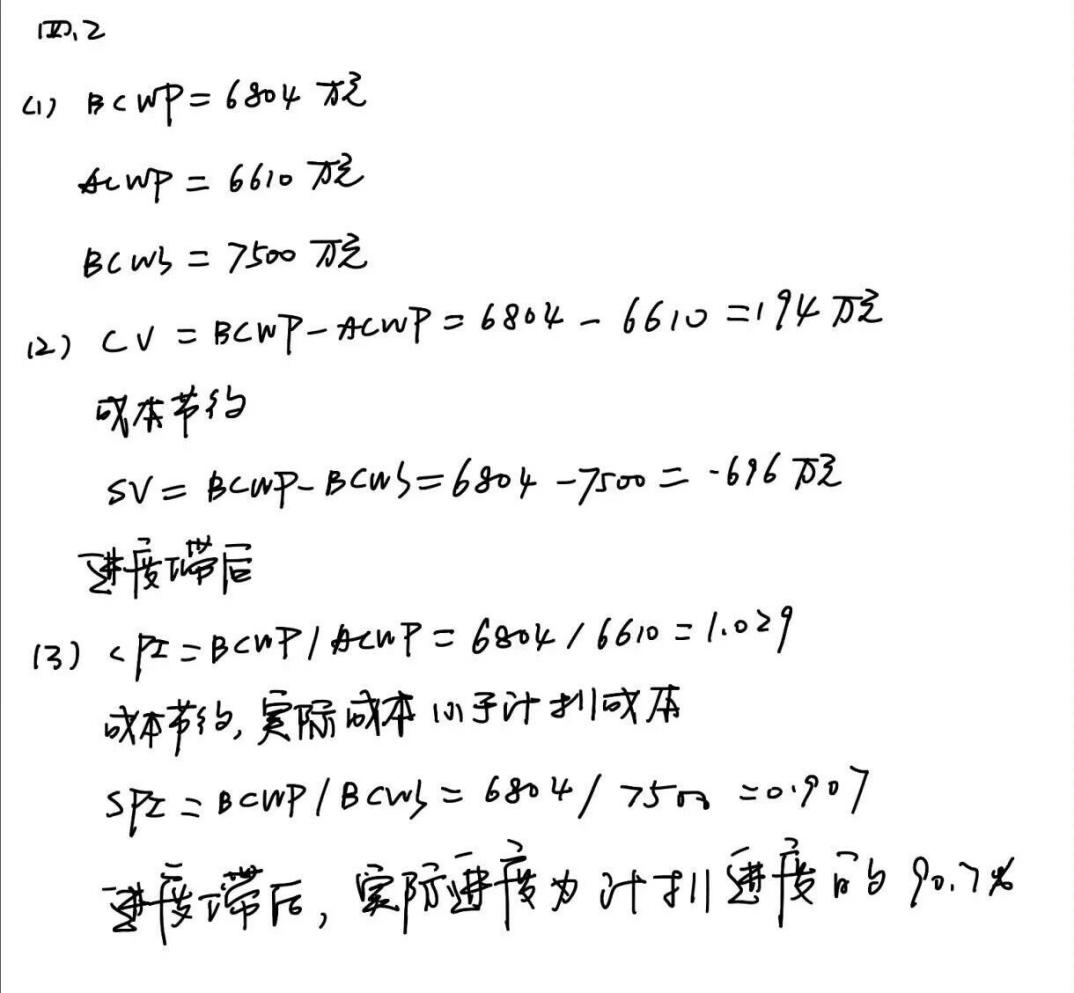 四、2
(1) BCWP = 6804 万元
ACWP = 6610 万元
BCWS = 7500 万元
(2) CV = BCWP - ACWP = 6804 - 6610 = 194 万元
成本节约
SV = BCWP - BCWS = 6804 - 7500 = -696 万元
进度滞后
(3) CPI = BCWP / ACWP = 6804 / 6610 = 1.029
成本节约, 实际成本小于计划成本
SPI = BCWP / BCWS = 6804 / 7500 = 0.907
进度滞后, 实际进度为计划进度的 90.7%